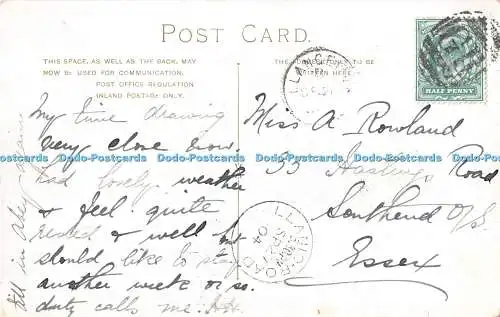 POST CARD.
THIS SPACE, AS WELL AS THE BACK, MAY
NOW BE USED FOR COMMUNICATION.
POST OFFICE REGULATION
INLAND POSTAGE ONLY.
TO BE
HERE
HALF PENNY
My time drawing
very close now.
had lovely weather
& feel quite
& well but
should like to stay
another week or so.
duty calls me.
till in
Miss A Rowland
33 Hastings Road
Southend o/S.
Essex
LLANGE
LLANGE ROAD
SP
04
Dodo-Postcards Dodo-Postcards Dodo-Postcards Dodo-Postcards Dodo-Postcards Dodo-Postcards